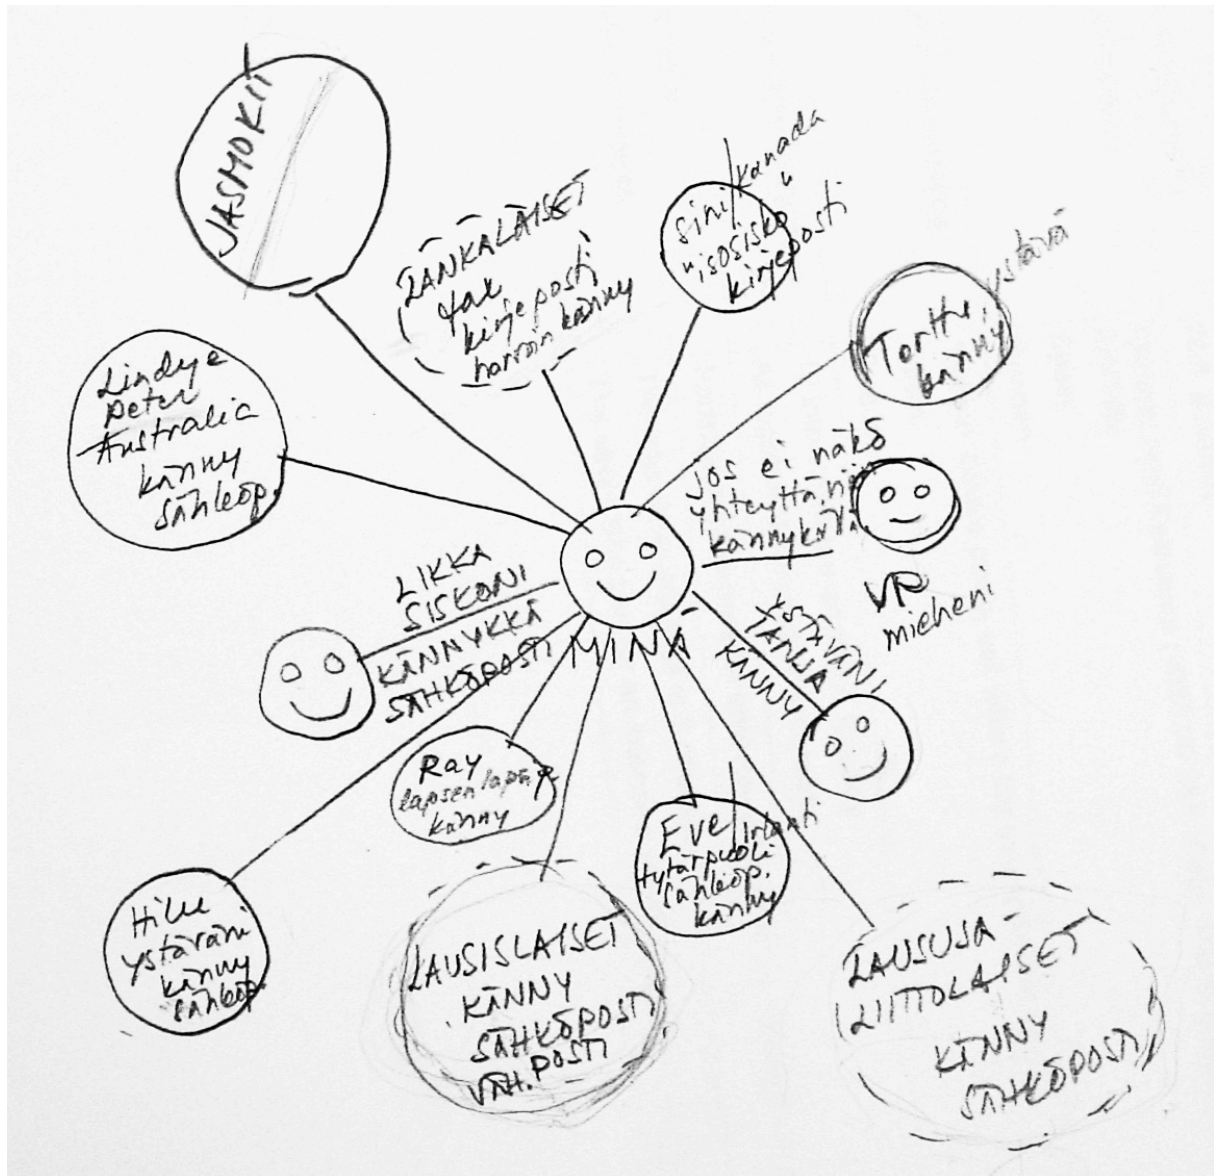 JASMOKII
LÄNKÄLÄISET
kirjeposti
harvoin känny
Sini/Kanada
"isosisko"
kirjeposti
Terttu, ystävä
känny
Peter
Australia
känny
sähköp.
jos ei näkö
yhteyttä, niin
kännykällä
VP
mieheni
LIKKA
SISKONI
KÄNNYKKÄ
SÄHKÖPOSTI
MINÄ
YSTÄVÄNI
TANJA
KÄNNY
Ray
känny
Eve/Irlanti
tytärpuoli
sähköp.
känny
ystäväni
känny
sähköp.
LAUSISLAISET
KÄNNY
SÄHKÖPOSTI
VÄH. POSTI
LAUSUJA-
LIITTOLAISET
KÄNNY
SÄHKÖPOSTI